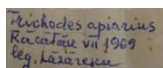 Trichodes apiarius
Răcătău VII 1969
leg. Lăzărescu